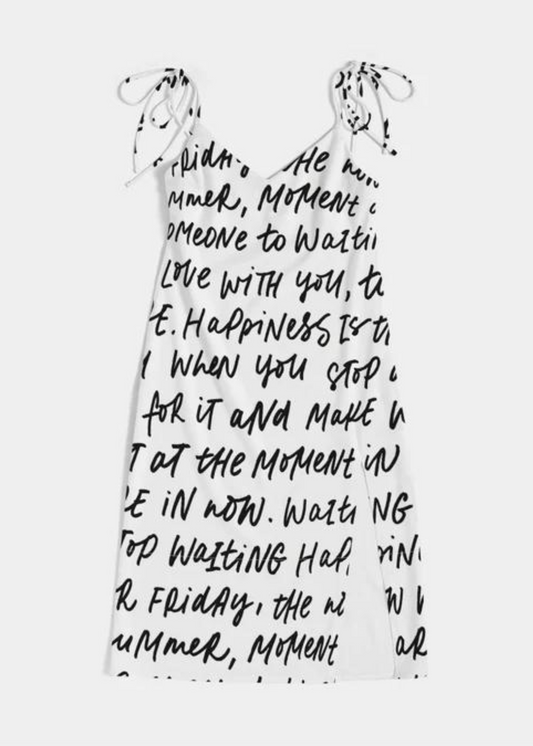 FRiDAY THE
MMER, MOMENT
OMEONE to WaItiN
LOVE WiTH yOU, t
E. HaPPiNESS IS t
WHEN yOU STOP
fOR iT aNd MaKE
T aT tHE MOMENT iN
E IN NOW. WaIti NG
TOP WaItiNG HaP PiN
R FRiDAy, tHE NO OW
UMMER, MOMENT AR